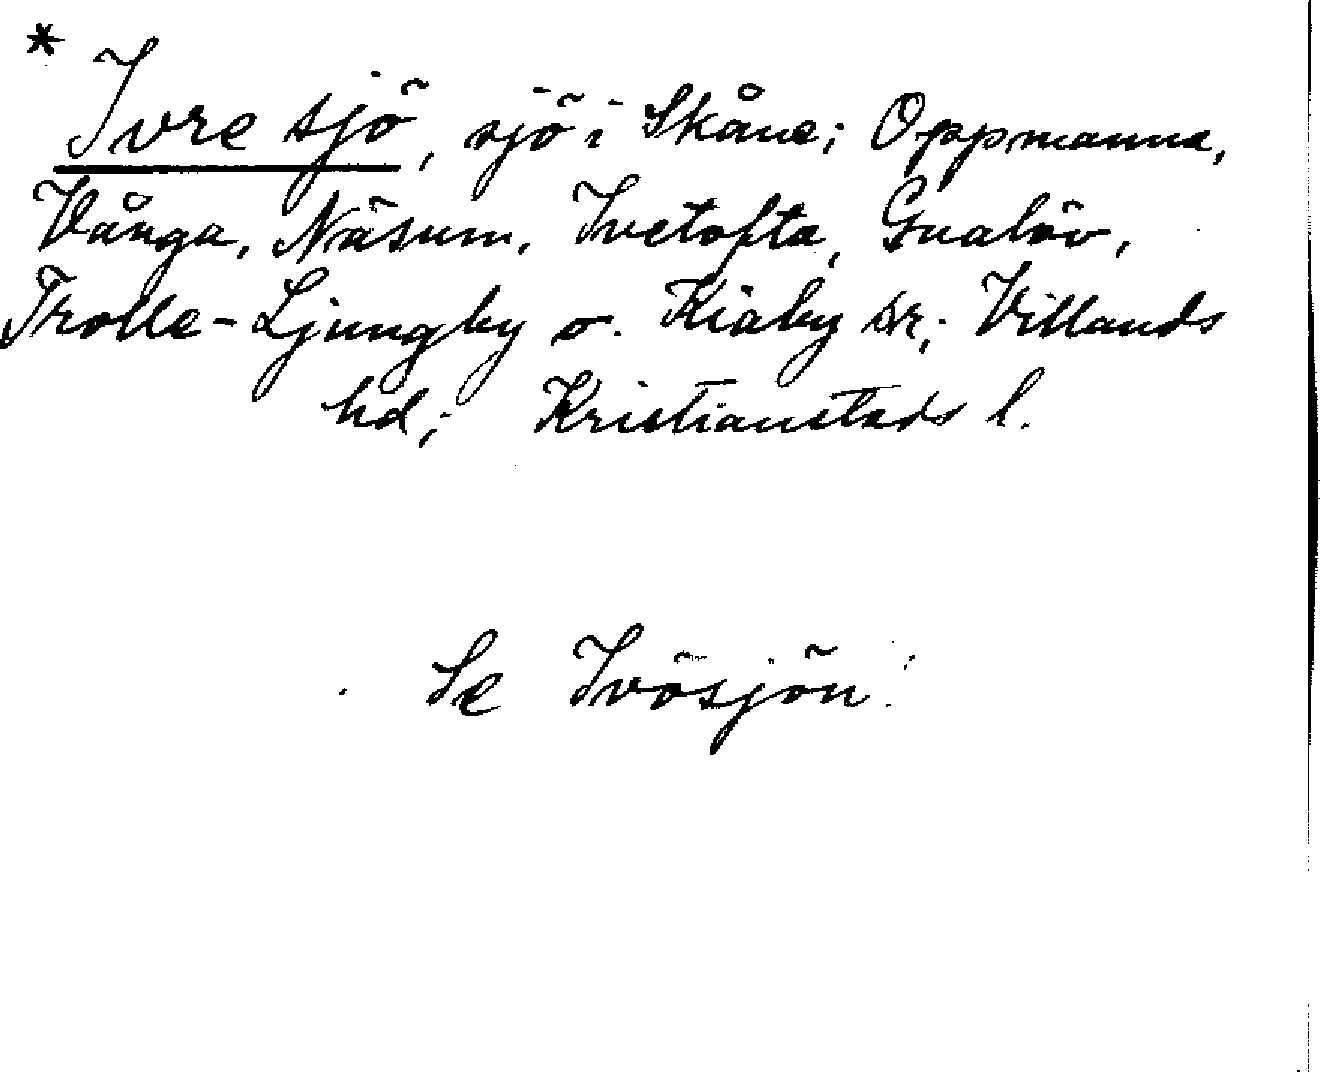 * Ivre sjö, sjö i Skåne; Oppmanna,
Vånga, Näsum, Ivetofta, Gualöv,
Trolle-Ljungby o. Kiaby snr; Villands
hd; Kristianstads l.
Se Ivösjön.